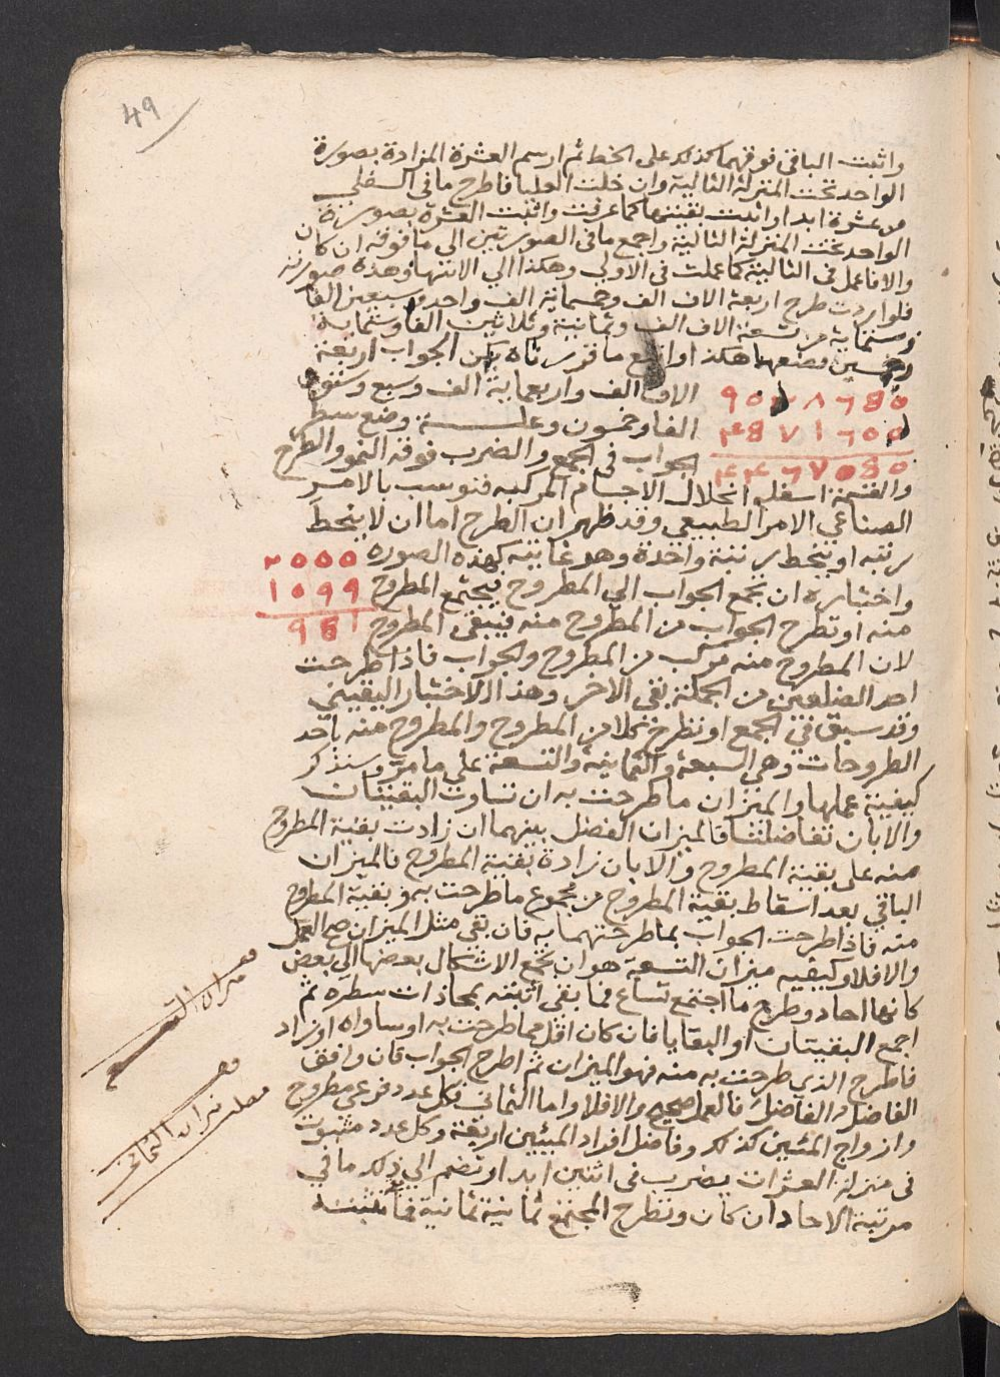 49
واثبت الباقي فوقهما كذلك على الخط ثم ارسم العشرة المزادة بصورة
الواحد تحت المنزلة التالية وان خلت العليا فاطرح ما في السفلى
من عشرة ابدا واثبت بقيتها كما عرفت واثبت العشرة بصورة
الواحد تحت المنزلة التالية واجمع ما في الصورتين الى ما فوقه ان كان
والا فاعمل في التالية كما عملت في الاولى وهكذا الى الانتها وهذه صورته
فلو اردت طرح اربعة الاف الف وخمسماية الف واحد وسبعين الفا
وستماية من تسعة الاف الف وثمانية وثلاثين الفا وستماية
وخمسين فضعهما هكذا واتبع ما قررناه يكن الجواب اربعة
الاف الف واربعماية الف وسبع وستون
الفا وخمسون وعلــة وضع سطر
الجواب في الجمع والضرب فوقه النمو والطرح
والقسمة اسفل انحلال الاجسام المركبه فنوسب بالامر
الصناعي الامر الطبيعي وقد ظهر ان الطرح اما ان لا ينحط
رتبه او ينحط رتبة واحدة وهو غايته كهذه الصورة ٢٥٥٥
واختباره ان تجمع الجواب الى المطروح فيجتمع المطروح ١٥٩٩
منه او تطرح الجواب من المطروح منه فيبقى المطروح
لان المطروح منه مركب من المطروح والجواب فاذا طرحت
احد الضلعين من الجملة بقي الاخر وهذا الاختبار اليقيني
وقد سبق في الجمع او تطرح كلا من المطروح والمطروح منه باحد
الطروحات وهي السبعة والثمانية والتسعة على ما مر وسنذكر
كيفية عملها والميزان ما طرحت به ان تساوت البقيتان
والا بان تفاضلتا فالميزان الفضل بينهما ان زادت بقية المطروح
منه على بقية المطروح والا بان زادة بقية المطروح فالميزان
الباقي بعد اسقاط بقية المطروح من مجموع ما طرحت به وبقية المطروح
منه فاذا طرحت الجواب بما طرحتهما به فان بقي مثل الميزان صح العمل
والا فلا وكيفيه ميزان التسعة هو ان تجمع الاشكال بعضها الى بعض
كانها احاد وطرح ما اجتمع تساع فما بقي اثبته بمحاذات سطره ثم
اجمع البقيتان او البقايا فان كان اقل مما طرحت به او ساواه او زاد
فاطرح الذي طرحت به منه فهو الميزان ثم اطرح الجواب فان وافق
الفاضل الفاضل فالعمل صحيح والا فلا واما الثماني فكل عدد فرعي مطروح
وازواج المئين كذلك وفاضل افراد المئين اربعة وكل عدد مثبوت
في منزلة العشرات يضرب في اثنين ابدا وتضم الى ذلك ما في
مرتبة الاحاد ان كان وتطرح المجتمع ثمانية ثمانية فما
ميزان التسع
ميزان الثماني